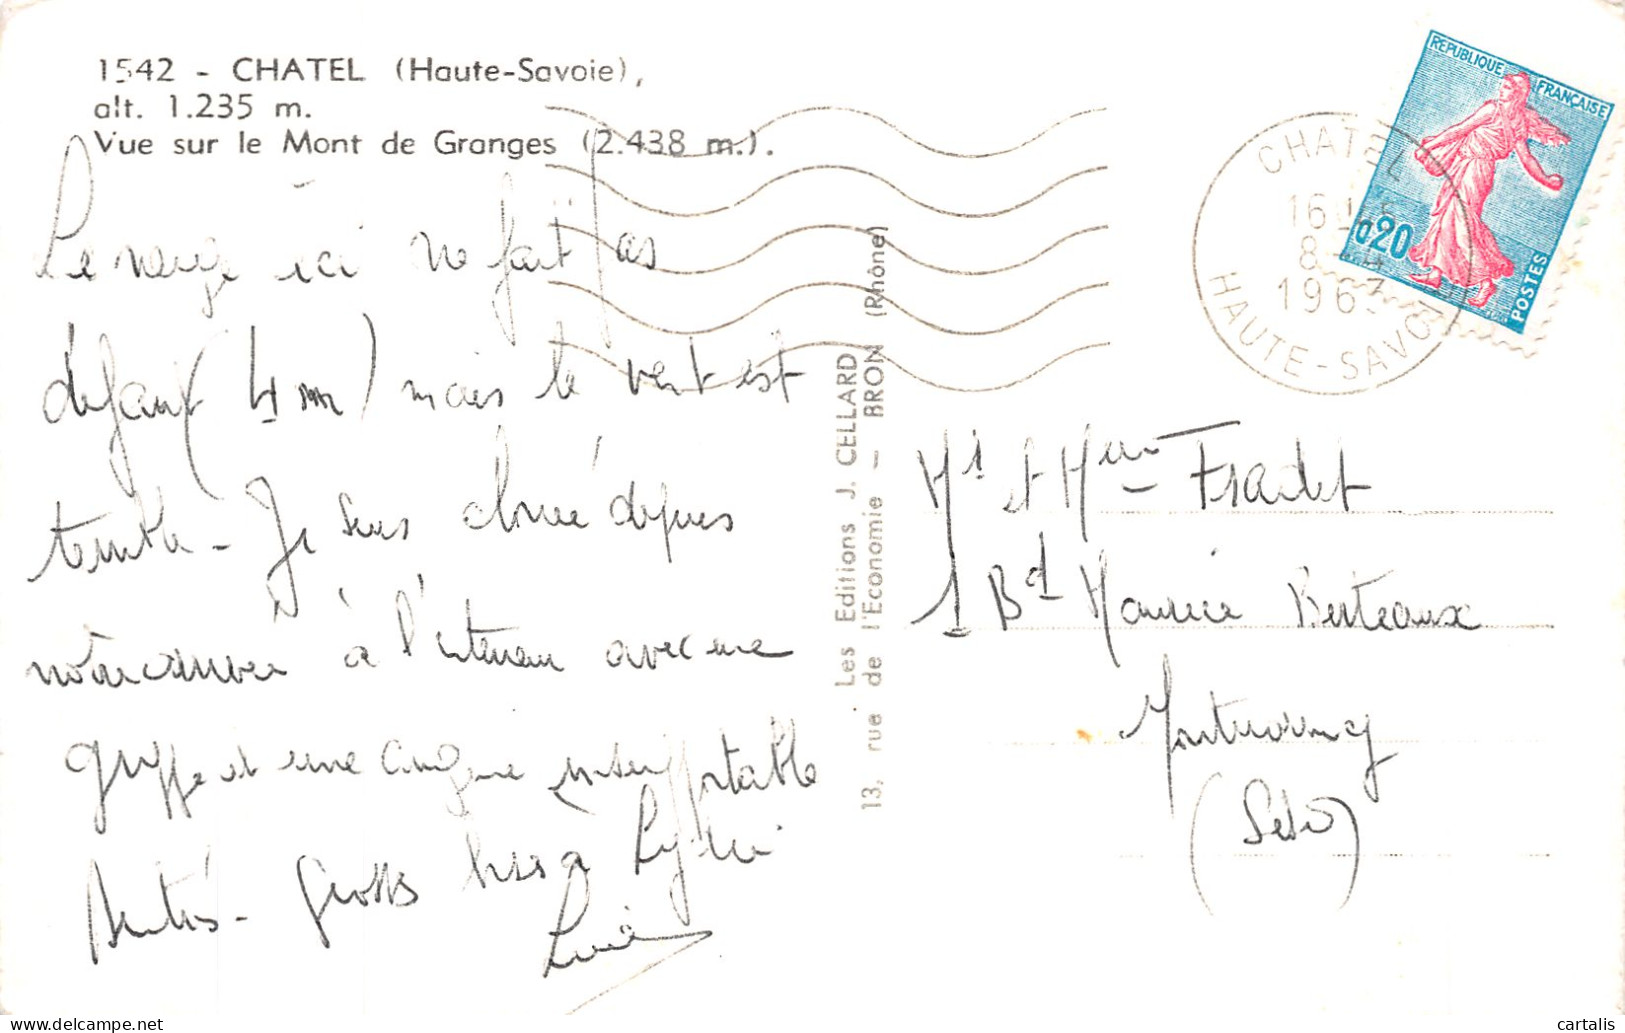 1542 - CHATEL (Haute-Savoie),
alt. 1.235 m.
Vue sur le Mont de Granges (2.438 m.).
La neige ici ne fait pas
défaut (4 m) mais le vent est
terrible - Je suis clouée depuis
notre arrivée à l'intérieur avec une
grippe et une angine insupportable
Amitiés - Grosses bises à Sylvie
Lucie
Les Editions J. CELLARD
13, rue de l'Economie - BRON (Rhône)
REPUBLIQUE FRANÇAISE
0,20
POSTES
CHATEL
16
8 - 4
1963
HAUTE-SAVOIE
Mr et Mme Fradet
1 Bd Maurice Berteaux
Montmorency
(Seine)
cartalis